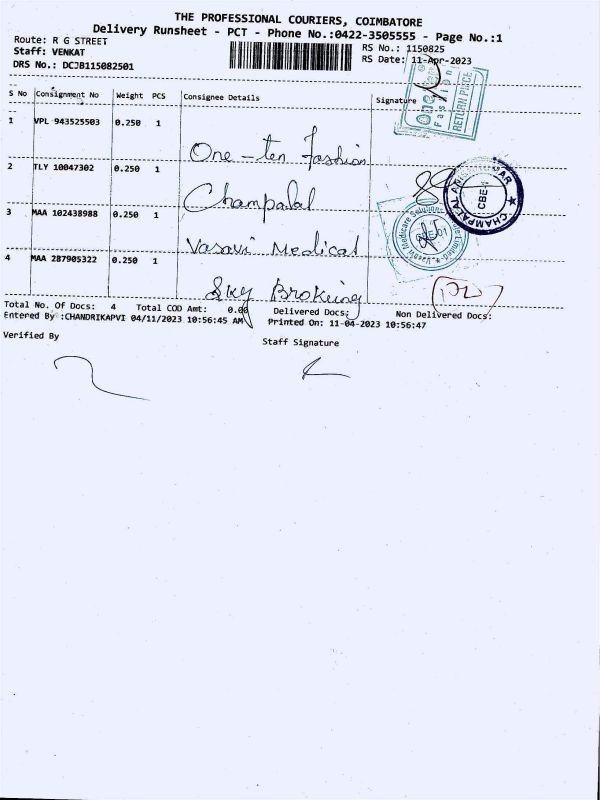 THE PROFESSIONAL COURIERS, COIMBATORE
Delivery Runsheet - PCT - Phone No.:0422-3505555 - Page No.:1
Route: R G STREET
RS No.: 1150825
Staff: VENKAT
RS Date: 11-Apr-2023
DRS No.: DCJB115082501
S No Consignment No Weight PCS Consignee Details Signature
1 VPL 943525503 0.250 1
One-ten Fashion
One
Fashion
RETURN PIECE
2 TLY 10047302 0.250 1
Champalal
CHAMPALAL
CBE-1
3 MAA 102438988 0.250 1
Vasavi Medical
Vasavi Medicare Solutions Private Limited
4 MAA 287905322 0.250 1
Sky Broking
Total No. Of Docs: 4 Total COD Amt: 0.00 Delivered Docs: Non Delivered Docs:
Entered By :CHANDRIKAPVI 04/11/2023 10:56:45 AM Printed On: 11-04-2023 10:56:47
Verified By
Staff Signature